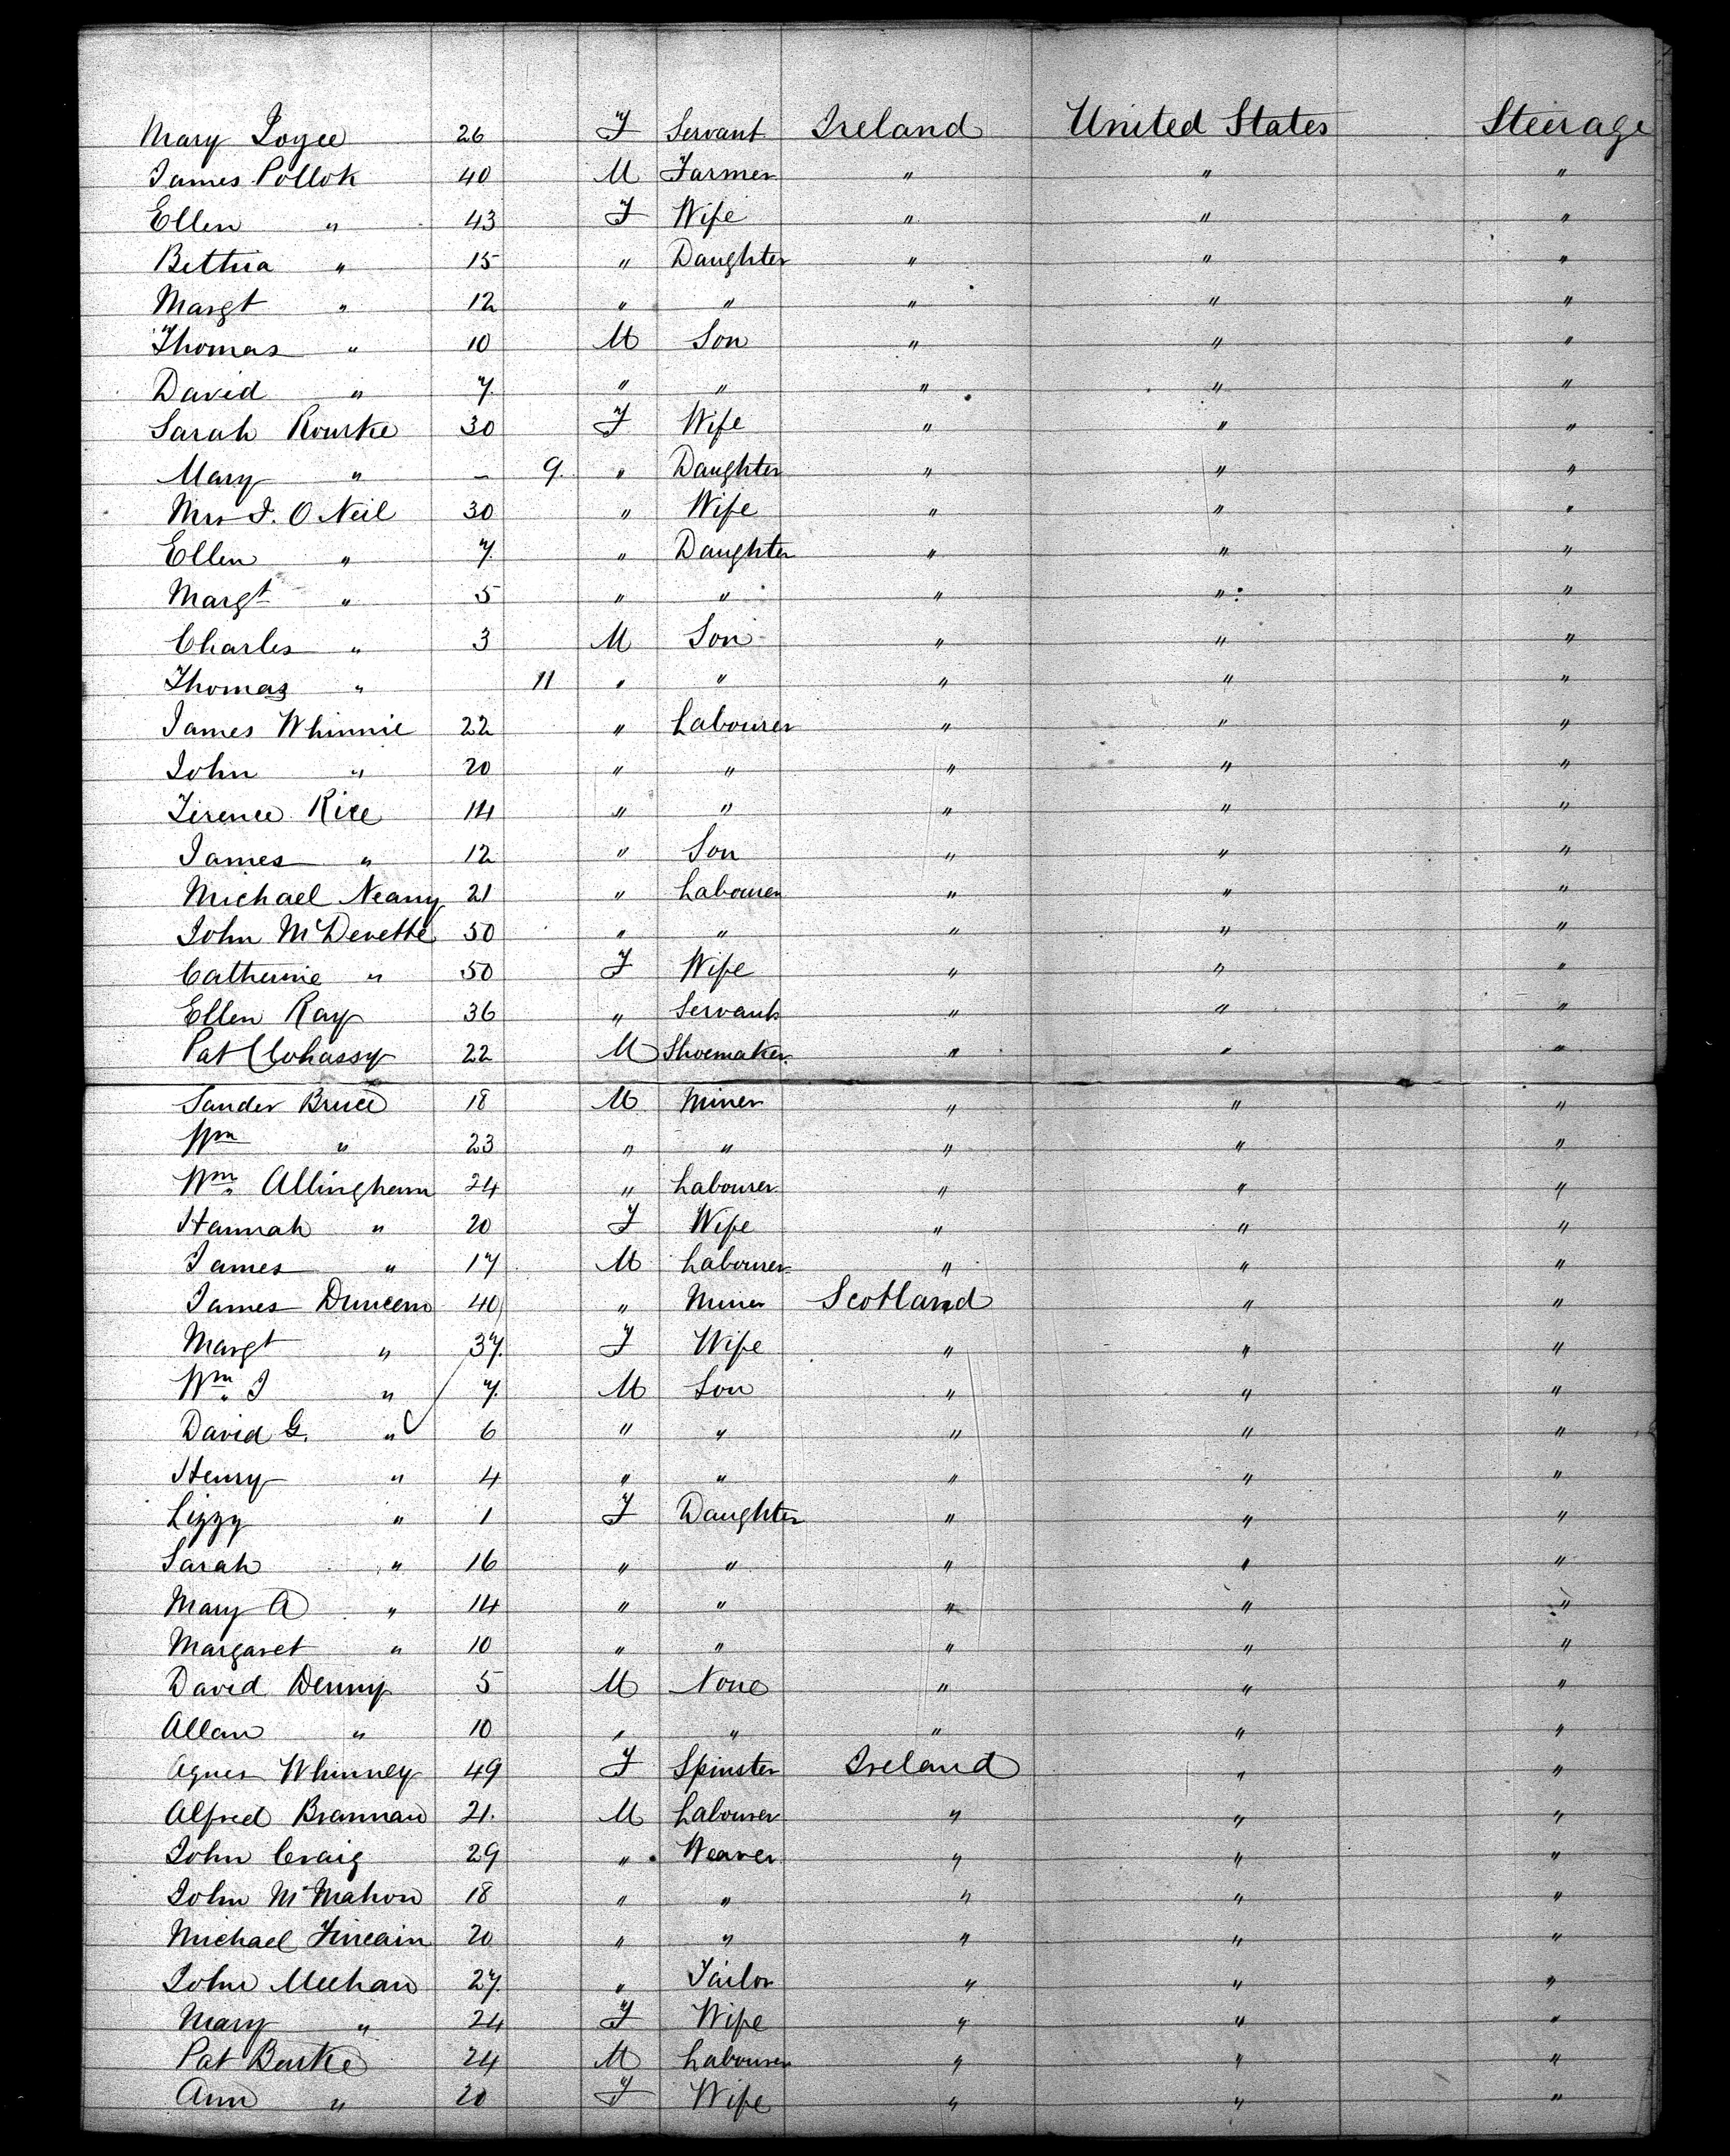 Mary Joyce 26 F Servant Ireland United States Steerage
James Pollok 40 M Farmer " " "
Ellen " 43 F Wife " " "
Bethia " 15 " Daughter " " "
Margt " 12 " " " " "
Thomas " 10 M Son " " "
David " 7. " " " " "
Sarah Rourke 30 F Wife " " "
Mary " – 9. " Daughter " " "
Mrs J. O Neil 30 " Wife " " "
Ellen " 7. " Daughter " " "
Margt " 5 " " " " "
Charles " 3 M Son " " "
Thomas " 11 " " " " "
James Whinnie 22 " Labourer " " "
John " 20 " " " " "
Terence Rice 14 " " " " "
James " 12 " Son " " "
Michael Neary 21 " Labourer " " "
John McDevette 50 " " " " "
Catherine " 50 F Wife " " "
Ellen Ray 36 " Servant " " "
Pat Cohassy 22 M Shoemaker " " "
Sander Bruce 18 M Miner " " "
Wm " 23 " " " " "
Wm Allingham 24 " Labourer " " "
Hannah " 20 F Wife " " "
James " 17 M Labourer " " "
James Duncan 40 " Miner Scotland " "
Margt " 37. F Wife " " "
Wm J " 7. M Son " " "
David G. " 6 " " " " "
Henry " 4 " " " " "
Lizzy " 1 F Daughter " " "
Sarah " 16 " " " " "
Mary A " 14 " " " " "
Margaret " 10 " " " " "
David Denny 5 M None " " "
Allan " 10 " " " " "
Agnes Whinney 49 F Spinster Ireland " "
Alfred Brannan 21. M Labourer " " "
John Craig 29 " Weaver " " "
John McMahon 18 " " " " "
Michael Fincain 20 " " " " "
John Meehan 27. " Tailor " " "
Mary " 24 F Wife " " "
Pat Burke 24 M Labourer " " "
Ann " 20 F Wife " " "